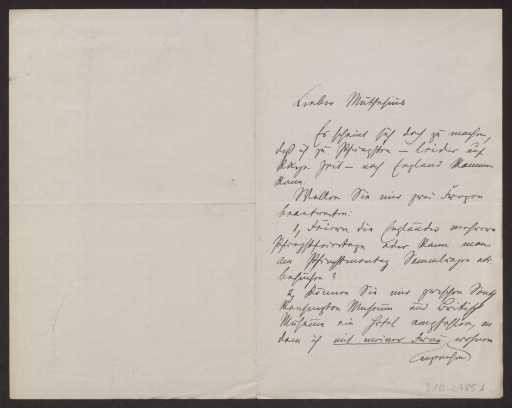 Lieber Muthesius
Es scheint sich doch zu machen,
daß ich zu Pfingsten – leider auf
kurze Zeit – nach England kommen
kann.
Wollen Sie mir zwei Fragen
beantworten:
1, Feiern die Engländer mehrere
Pfingstfeiertage oder kann man
am Pfingstmontag Sammlungen etc
besuchen?
2, Können Sie mir zwischen South
Kensington Museum und British
Museum ein Hotel empfehlen, in
dem ich mit meiner Frau wohnen
D10-2785 1